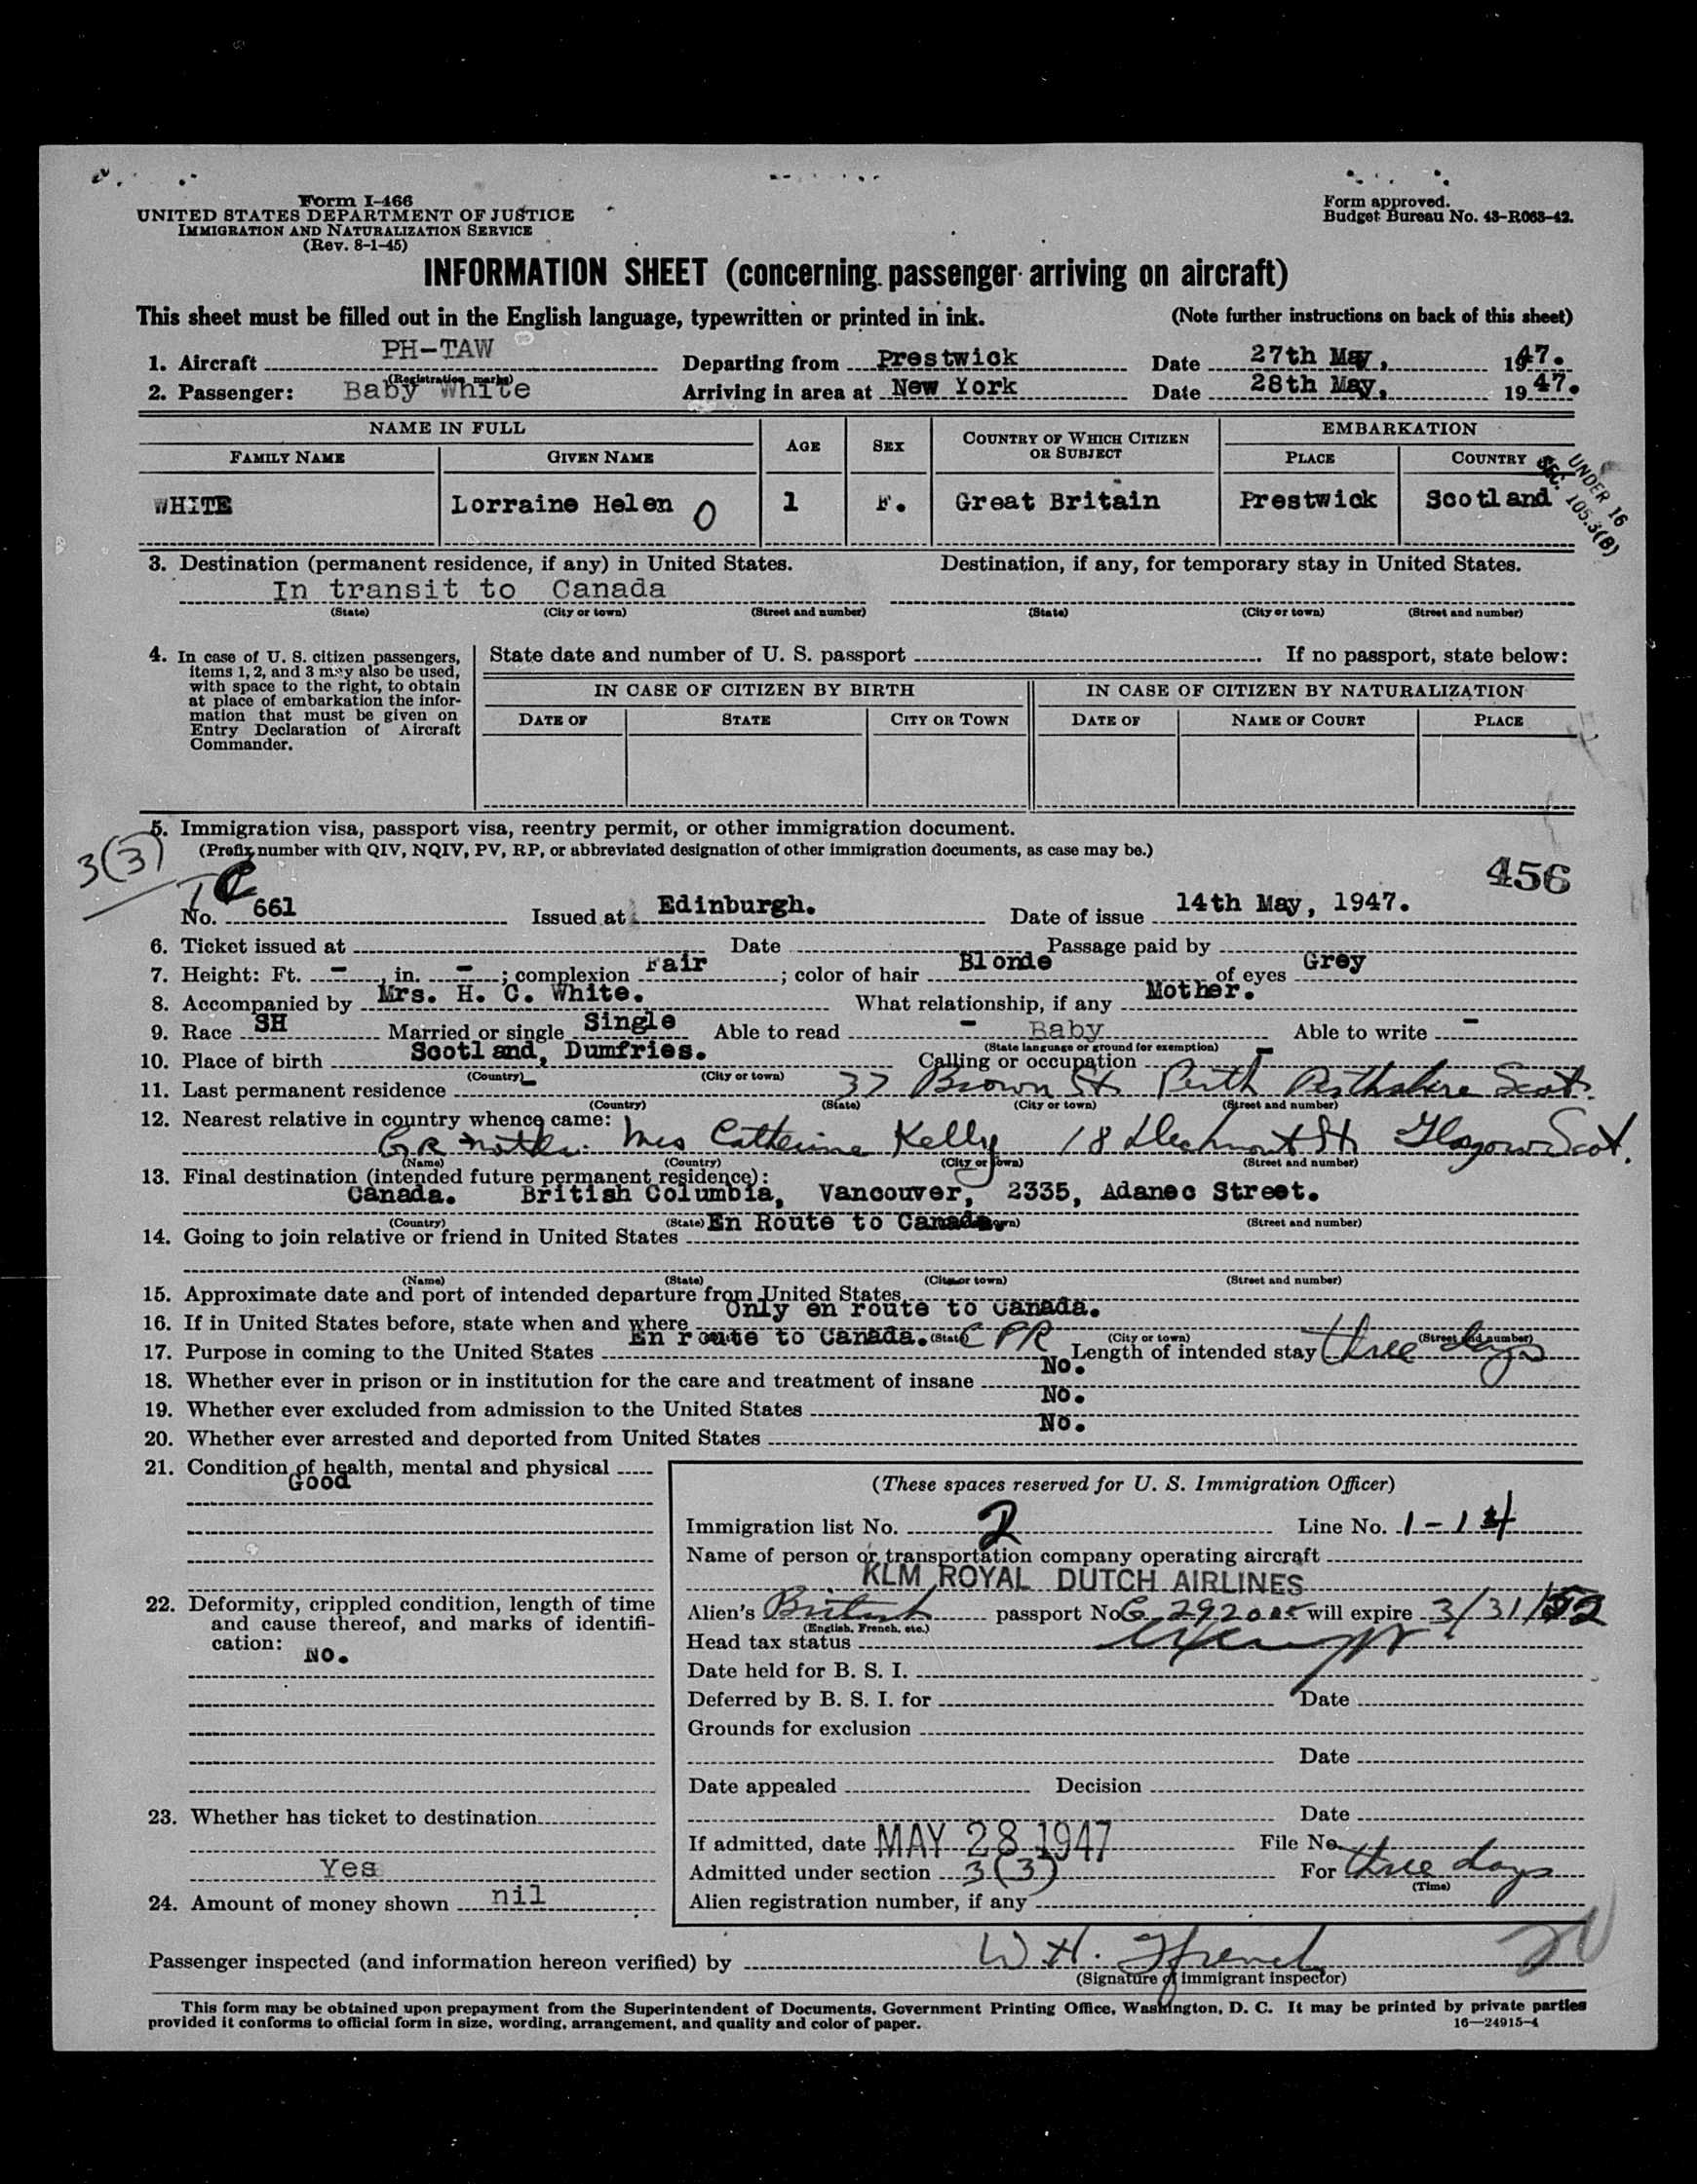 Form I-466
UNITED STATES DEPARTMENT OF JUSTICE
IMMIGRATION AND NATURALIZATION SERVICE
(Rev. 8-1-45)
Form approved.
Budget Bureau No. 43-R063-42.
INFORMATION SHEET (concerning passenger arriving on aircraft)
This sheet must be filled out in the English language, typewritten or printed in ink. (Note further instructions on back of this sheet)
1. Aircraft PH-TAW Departing from Prestwick Date 27th May, 1947.
(Registration marks)
2. Passenger: Baby White Arriving in area at New York Date 28th May, 1947.
NAME IN FULL AGE SEX COUNTRY OF WHICH CITIZEN OR SUBJECT EMBARKATION
FAMILY NAME GIVEN NAME PLACE COUNTRY
WHITE Lorraine Helen 0 1 F. Great Britain Prestwick Scotland
UNDER 16
SEC. 105.3(B)
3. Destination (permanent residence, if any) in United States. Destination, if any, for temporary stay in United States.
In transit to Canada
(State) (City or town) (Street and number) (State) (City or town) (Street and number)
4. In case of U. S. citizen passengers, items 1, 2, and 3 may also be used, with space to the right, to obtain at place of embarkation the information that must be given on Entry Declaration of Aircraft Commander.
State date and number of U. S. passport If no passport, state below:
IN CASE OF CITIZEN BY BIRTH IN CASE OF CITIZEN BY NATURALIZATION
DATE OF STATE CITY OR TOWN DATE OF NAME OF COURT PLACE
5. Immigration visa, passport visa, reentry permit, or other immigration document.
(Prefix number with QIV, NQIV, PV, RP, or abbreviated designation of other immigration documents, as case may be.)
3(3)
456
TC
No. 661 Issued at Edinburgh. Date of issue 14th May, 1947.
6. Ticket issued at Date Passage paid by
7. Height: Ft. - , in. - ; complexion Fair ; color of hair Blonde of eyes Grey
8. Accompanied by Mrs. H. C. White. What relationship, if any Mother.
9. Race SH Married or single Single Able to read - Baby Able to write -
(State language or ground for exemption)
10. Place of birth Scotland, Dumfries. Calling or occupation -
(Country) (City or town)
11. Last permanent residence - 37 Brown St Perth Perthshire Scot.
(Country) (State) (City or town) (Street and number)
12. Nearest relative in country whence came:
GR Mother. Mrs Catherine Kelly 18 St Glasgow Scot.
(Name) (Country) (City or town) (Street and number)
13. Final destination (intended future permanent residence):
Canada. British Columbia, Vancouver, 2335, Adanec Street.
(Country) (State) (City or town) (Street and number)
14. Going to join relative or friend in United States En Route to Canada.
(Name) (State) (City or town) (Street and number)
15. Approximate date and port of intended departure from United States
16. If in United States before, state when and where Only en route to Canada.
(State) (City or town) (Street and number)
17. Purpose in coming to the United States En route to Canada. CPR Length of intended stay three days
18. Whether ever in prison or in institution for the care and treatment of insane No.
19. Whether ever excluded from admission to the United States No.
20. Whether ever arrested and deported from United States No.
21. Condition of health, mental and physical
Good
22. Deformity, crippled condition, length of time and cause thereof, and marks of identification:
NO.
23. Whether has ticket to destination
Yes
24. Amount of money shown nil
(These spaces reserved for U. S. Immigration Officer)
Immigration list No. 2 Line No. 1-14
Name of person or transportation company operating aircraft
KLM ROYAL DUTCH AIRLINES
Alien's British passport No. will expire 3/31/52
(English, French, etc.)
Head tax status
Date held for B. S. I.
Deferred by B. S. I. for Date
Grounds for exclusion
Date
Date appealed Decision
Date
If admitted, date MAY 28 1947 File No.
Admitted under section 3(3) For three days
(Time)
Alien registration number, if any
Passenger inspected (and information hereon verified) by W H. Ffrench
(Signature of immigrant inspector)
This form may be obtained upon prepayment from the Superintendent of Documents, Government Printing Office, Washington, D. C. It may be printed by private parties
provided it conforms to official form in size, wording, arrangement, and quality and color of paper. 16—24915-4